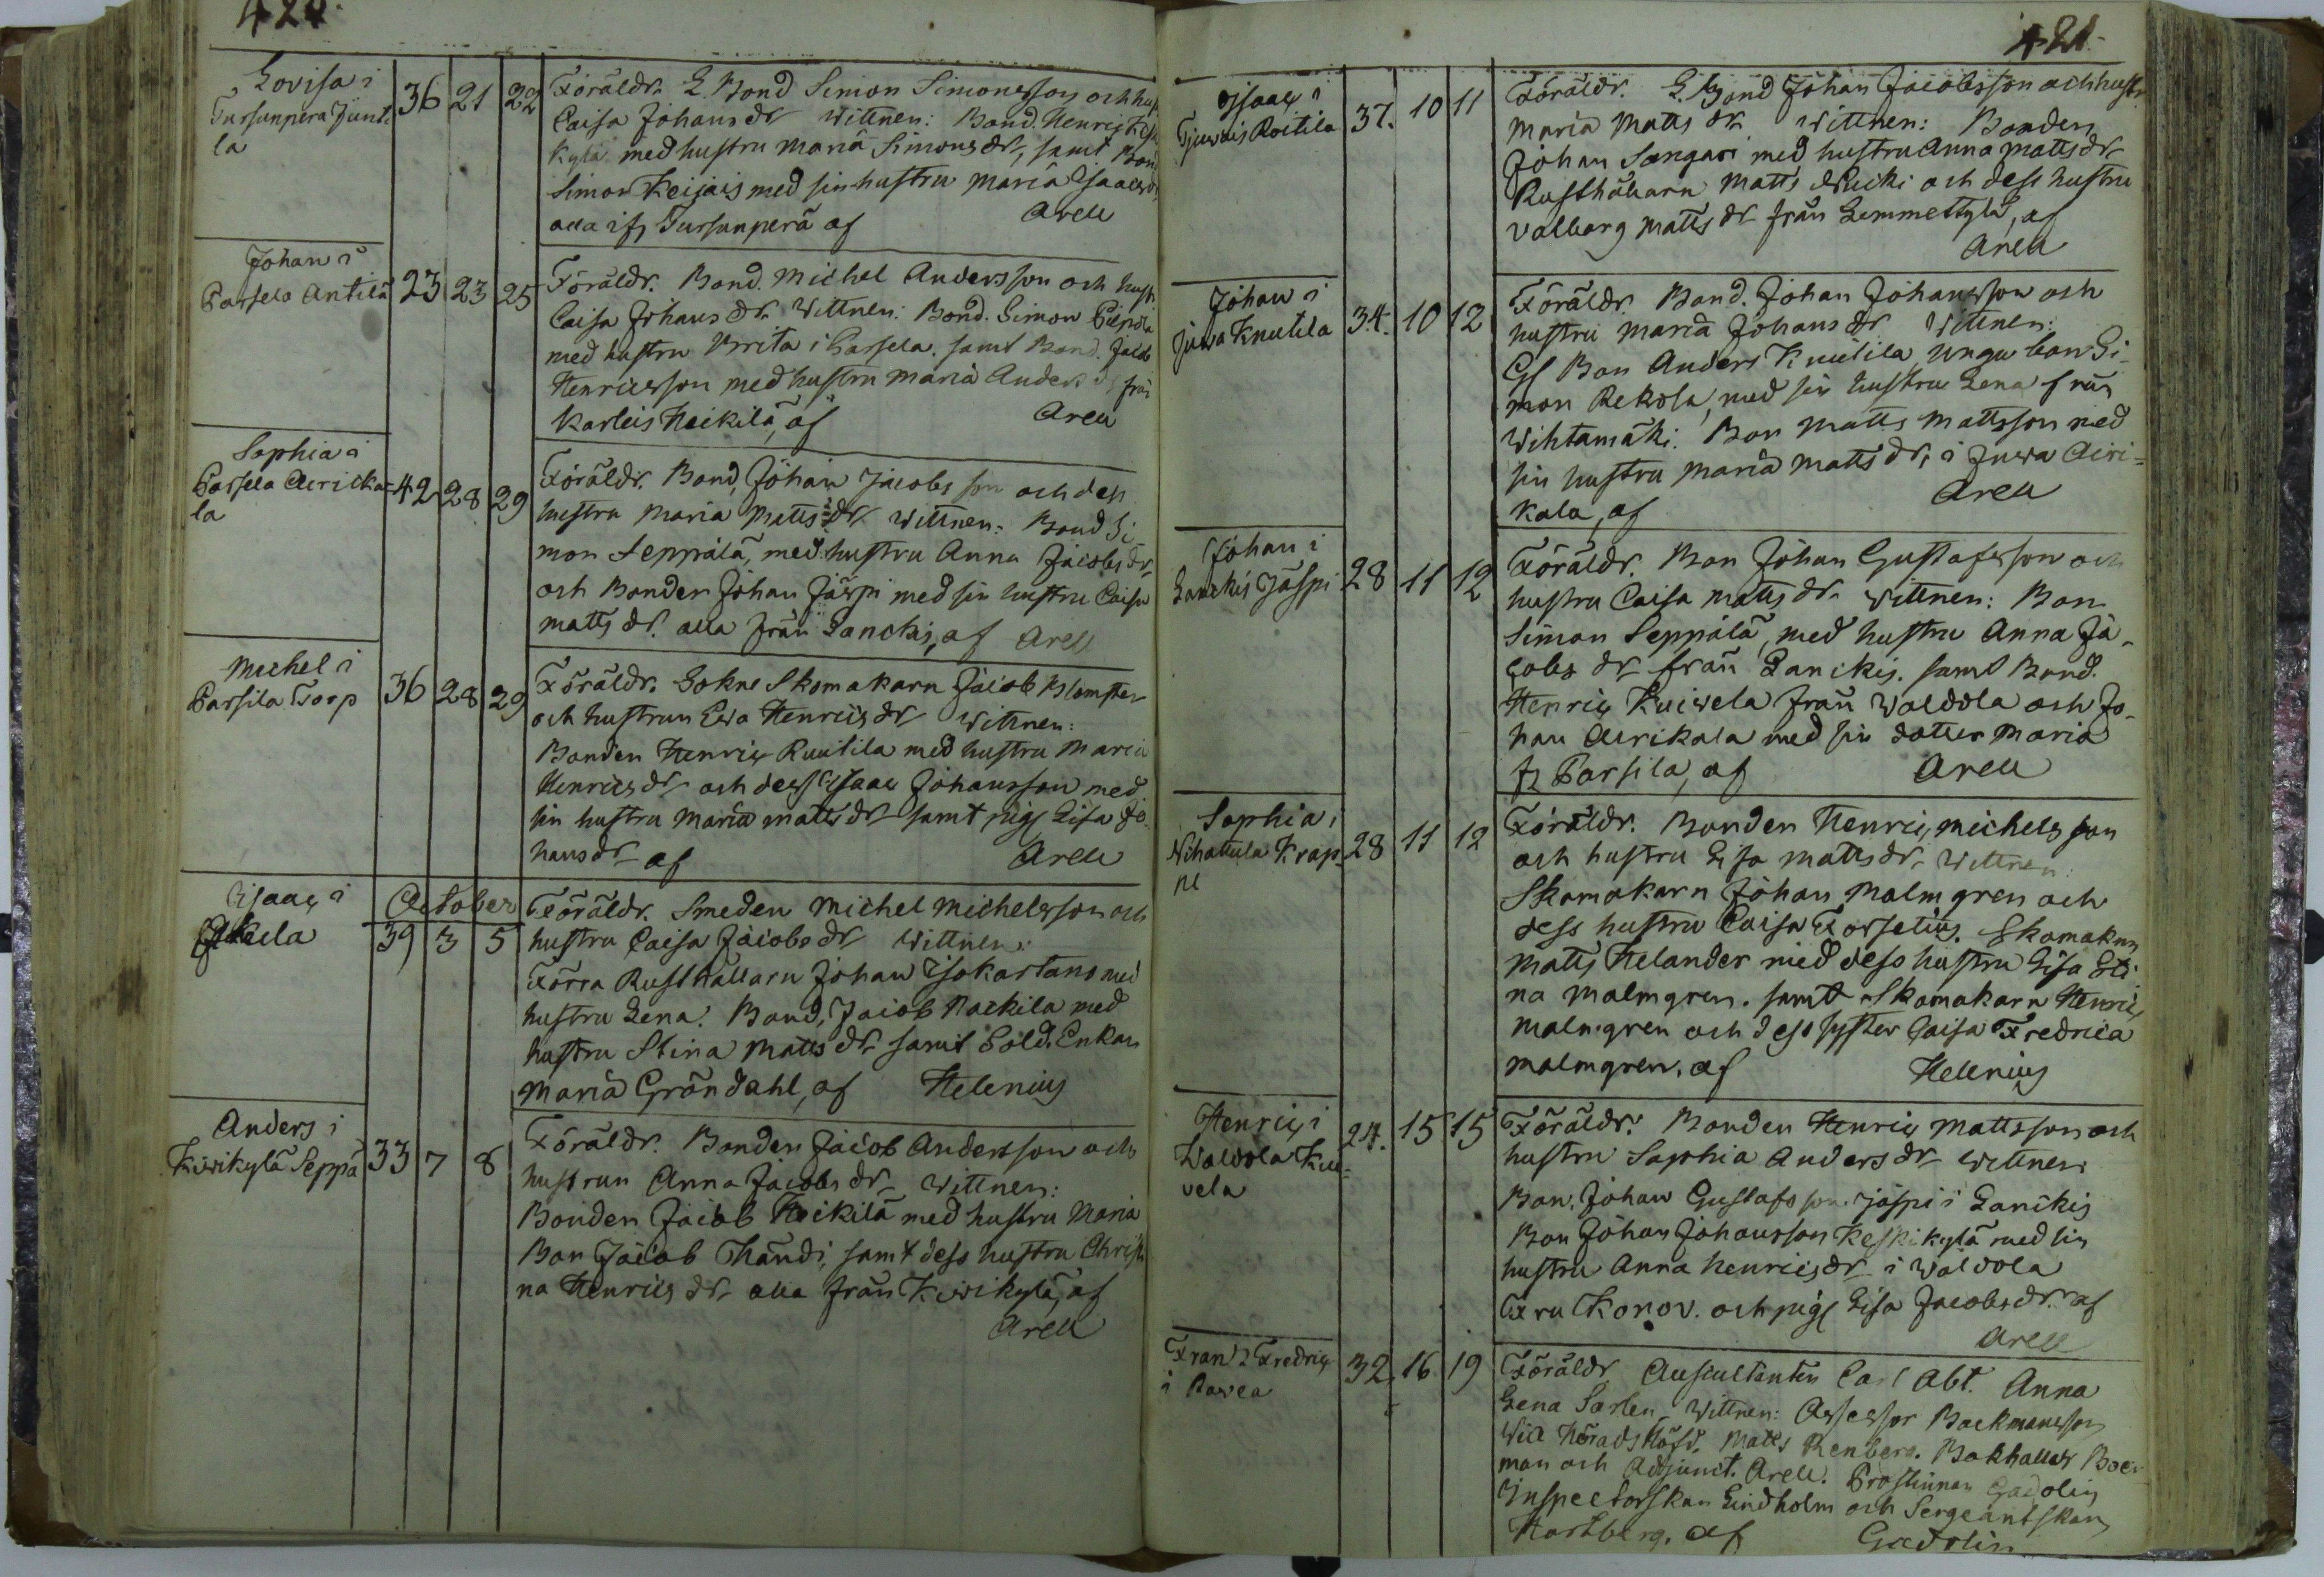 420.
Lovisa i
Tursunperä Junti
la
36 21 22
Föräldr. E. Bond Simon Simonsson och hu
Caisa Johans dr Wittnen: Bond. Henric Kes
kylä med hustru Maria Simons dr, samt Bon
Simon Keijais med sin hustru Maria Isaacs dr
alla ifr Tursunperä af Arell
Johan i
Parsela Antila
23 23 25
Föräldr. Bond. Michel Andersson och hust
Caisa Johans dr Wittnen: Bond. Simon Piepola
med hustru Brita i Parsela. samt Bond. Jacob
Henricsson med hustru Maria Anders dr från
Karleis Heikilä, af Arell
Sophia i
Parsela Aericka-
la
42 28 29
Föräldr. Bond, Johan Jacobs son och dess
hustru Maria Matts dr Wittnen: Bond Si
mon Seppälä, med hustru Anna Jacobs dr
och Bonden Johan Jäspi med sin hustru Caisa
Matts dr. alla från Lanckis, af Arell
Michel i
Parsila Torp
36 28 29
Föräldr. Sokne Skomakarn Jacob Blomster
och hustrun Ewa Henrics dr Wittnen:
Bonden Henric Ruutila med hustru Maria
Henrics dr och dess Isaac Johansson med
sin hustru Maria Matts dr samt pig Lisa Jo
hans dr af Arell
October
Isaac i
39 3 5
Föräldr. Smeden Michel Michelsson och
hustru Caisa Jacobs dr Wittnen:
Förra Rusthållarn Johan Isokartano med
hustru Lena. Bond, Jacob Nackila med
hustru Stina Matts dr samt Sold. Enkan
Maria Gröndahl, af Helenius
Anders i
Kiwikylä Seppä
33 7 8
Föräldr. Bonden Jacob Andersson och
hustrun Anna Jacobs dr Wittnen:
Bonden Jacob Heikilä med hustru Maria
Bon Jacob Händi, samt dess hustru Christi
na Henrics dr alla från Kiwikylä, af
Arell
421.
Isaac i
Tjuwais Roitila
37. 10 11
Föräldr. E. Bond Johan Jacobsson och hustr
Maria Matts dr Wittnen: Bonden
Johan Sangari med hustru Anna Matts dr
Rusthålarn Matts Nucki och dess hustru
Valborg Matts dr från Lemmettylä, af
Arell
Johan i
Juwa Knutila
34. 10 12
Föräldr. Bond. Johan Johansson och
hustru Maria Johans dr Wittnen:
Gl Bon Anders Knutila unga bon Si-
mon Rekola, med sin hustru Lena från
Wihtamäki. Bon Matts Mattsson med
sin hustru Maria Matts dr, i Juwa Airi-
kala, af Arell
Johan i
Lanckis Jäspi
28 11 12
Föräldr. Bon Johan Gustafsson och
hustru Caisa Matts dr Wittnen: Bon
Simon Seppälä, med hustru Anna Ja-
cobs dr från Lanckis. samt Bond.
Henric Kuiwela från Woldola och Jo-
han Aerikala med sin dotter Maria
fr Parsila, af Arell
Sophia i
Nihattula Krap-
ne
28 11 12
Föräldr. Bonden Henric Michels son
och hustru Lisa Matts dr, Wittnen:
Skomakarn Johan Malmgren och
dess hustru Caisa Forselius. Skomakarn
Matts Helander med dess hustru Lisa Sti
na Malmgren. samt Skomakarn Henric
Malmgren och dess syster Caisa Fredrica
Malmgren. af Helenius
Henric i
Waldola Kui-
vela
24. 15 15
Föräldr. Bonden Henric Mattsson och
hustru Sophia Anders dr Wittnen
Bon. Johan Gustafs son Jäspi i Lanckis
Bon Johan Johansson Keskikylä med sin
hustru Anna Henrics dr i Waldola
Fru Konov. och pig Lisa Jacobs dr. af
Arell
Frans Fredric
i Pawea
32 16 19
Föräldr. Auscultanten Carl Abt. Anna
Lena Sarlen. Wittnen: Assessor Backmansson
Vice Häradshöfd. Matts Renberg. Bokhållar Boc
man och Adjunct. Arell. Prostinnan Gadolin
Inspectorskan Lindholm och Sergeantskan
Hartberg. af Gadolin